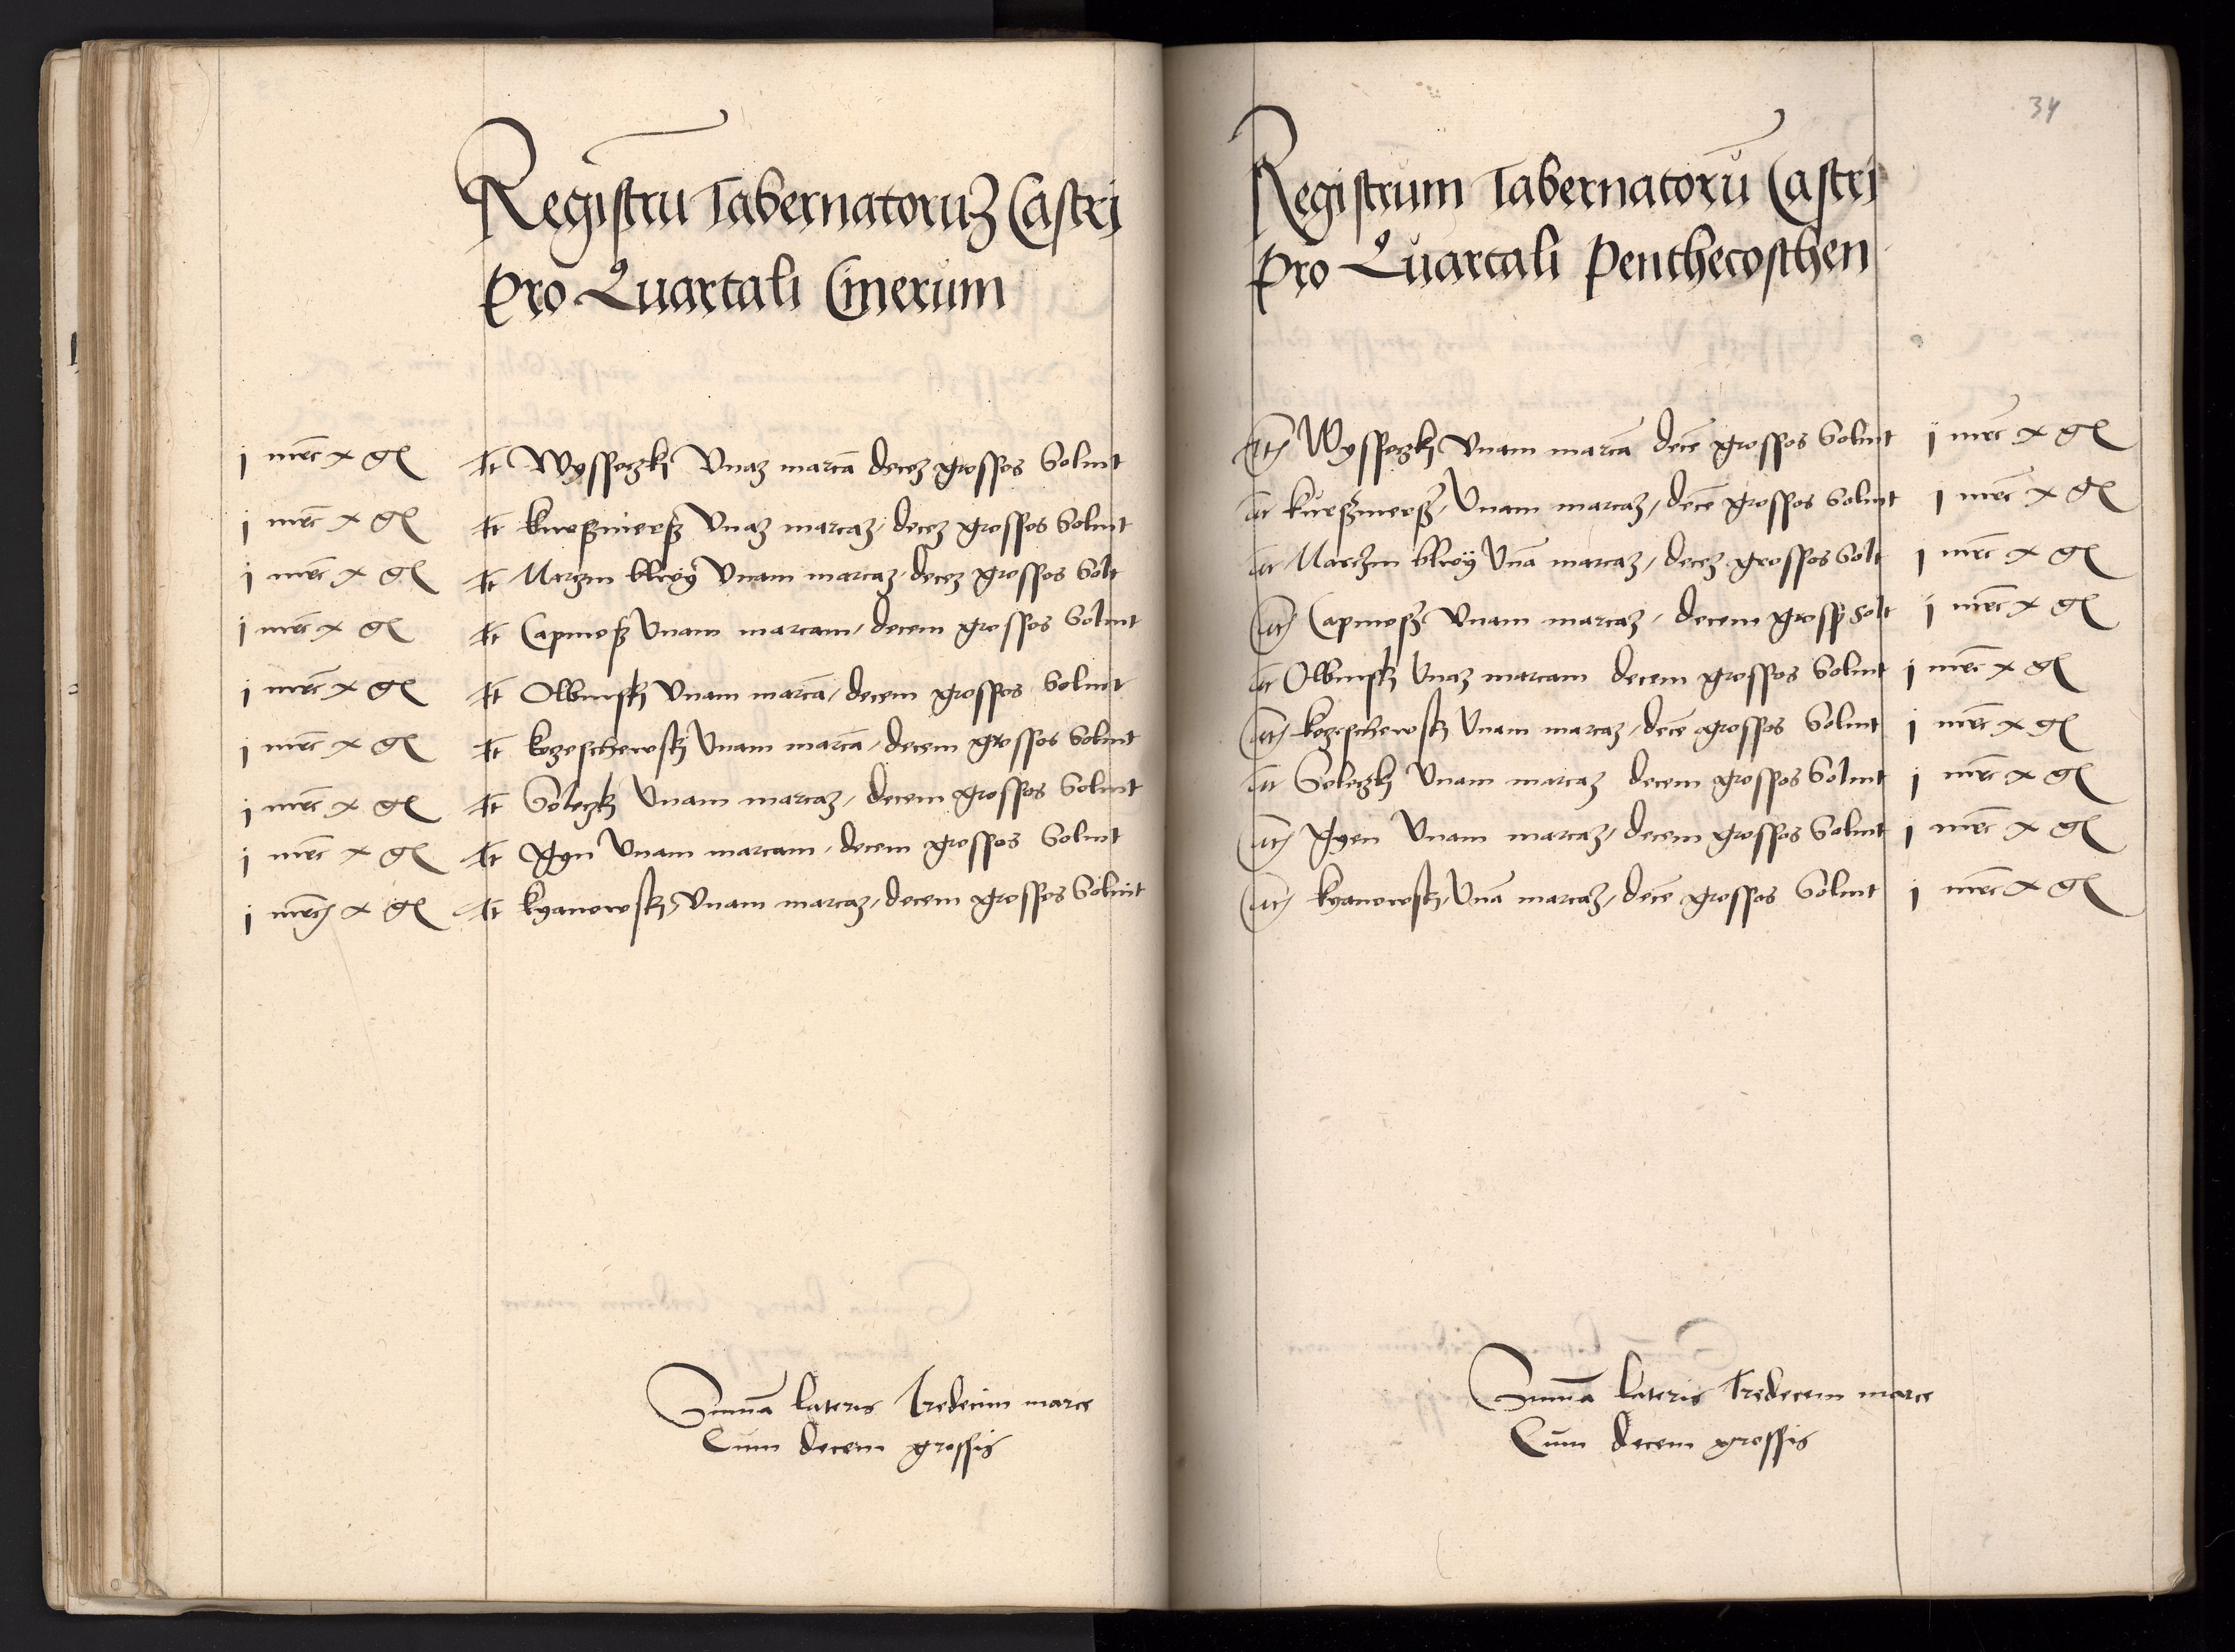 Registrũ Tabernatoruz Castri
Pro Quartali Cinerum
j mrc x gl It Wyssoczky Unaz marcā decez grossos Soluit
j mrc x gl It kurosznierß Unaz marcaz, decez grossos Soluit
j mrc x gl It Marczin Unam marcaz, decez grossos Solt
j mrc x gl It Capinosz Unam marcam, decem grossos Soluit
j mrc x gl It Olbinsky Unam marcā, decem grossos Soluit
j mrc x gl It kozeschewsky Unam marcā, decem grossos Soluit
j mrc x gl It Soleczky Unam marcaz, decem grossos Soluit
j mrc x gl It Unam marcam, decem grossos Soluit
j mrc x gl It kyanowsky, Unam marcaz, decem grossos Soluit
Summa lateris Tredecim marce
Cum decem grossis
34
Registrum Tabernatorū Castri
Pro Quartali Penthecosthen
It Wyssoczky Unam marcā decē grossos Soluit j mrc x gl
It kurßnierß, Unam marcaz, decē grossos Soluit j mrc x gl
It Marczin Unā marcaz, decez grossos Solt j mrc x gl
It Capinosz Unam marcaz, decem gross Solt j mrc x gl
It Olbinsky Unaz marcam decem grossos Soluit j mrc x gl
It kozeschewsky Unam marcaz, decē grossos Soluit j mrc x gl
It Soleczky Unam marcaz decem grossos Soluit j mrc x gl
It Unam marcaz, decem grossos Soluit j mrc x gl
It kyanowsky, Unā marcaz, decē grossos Soluit j mrc x gl
Summa lateris Tredecem marce
Cum decem grossis